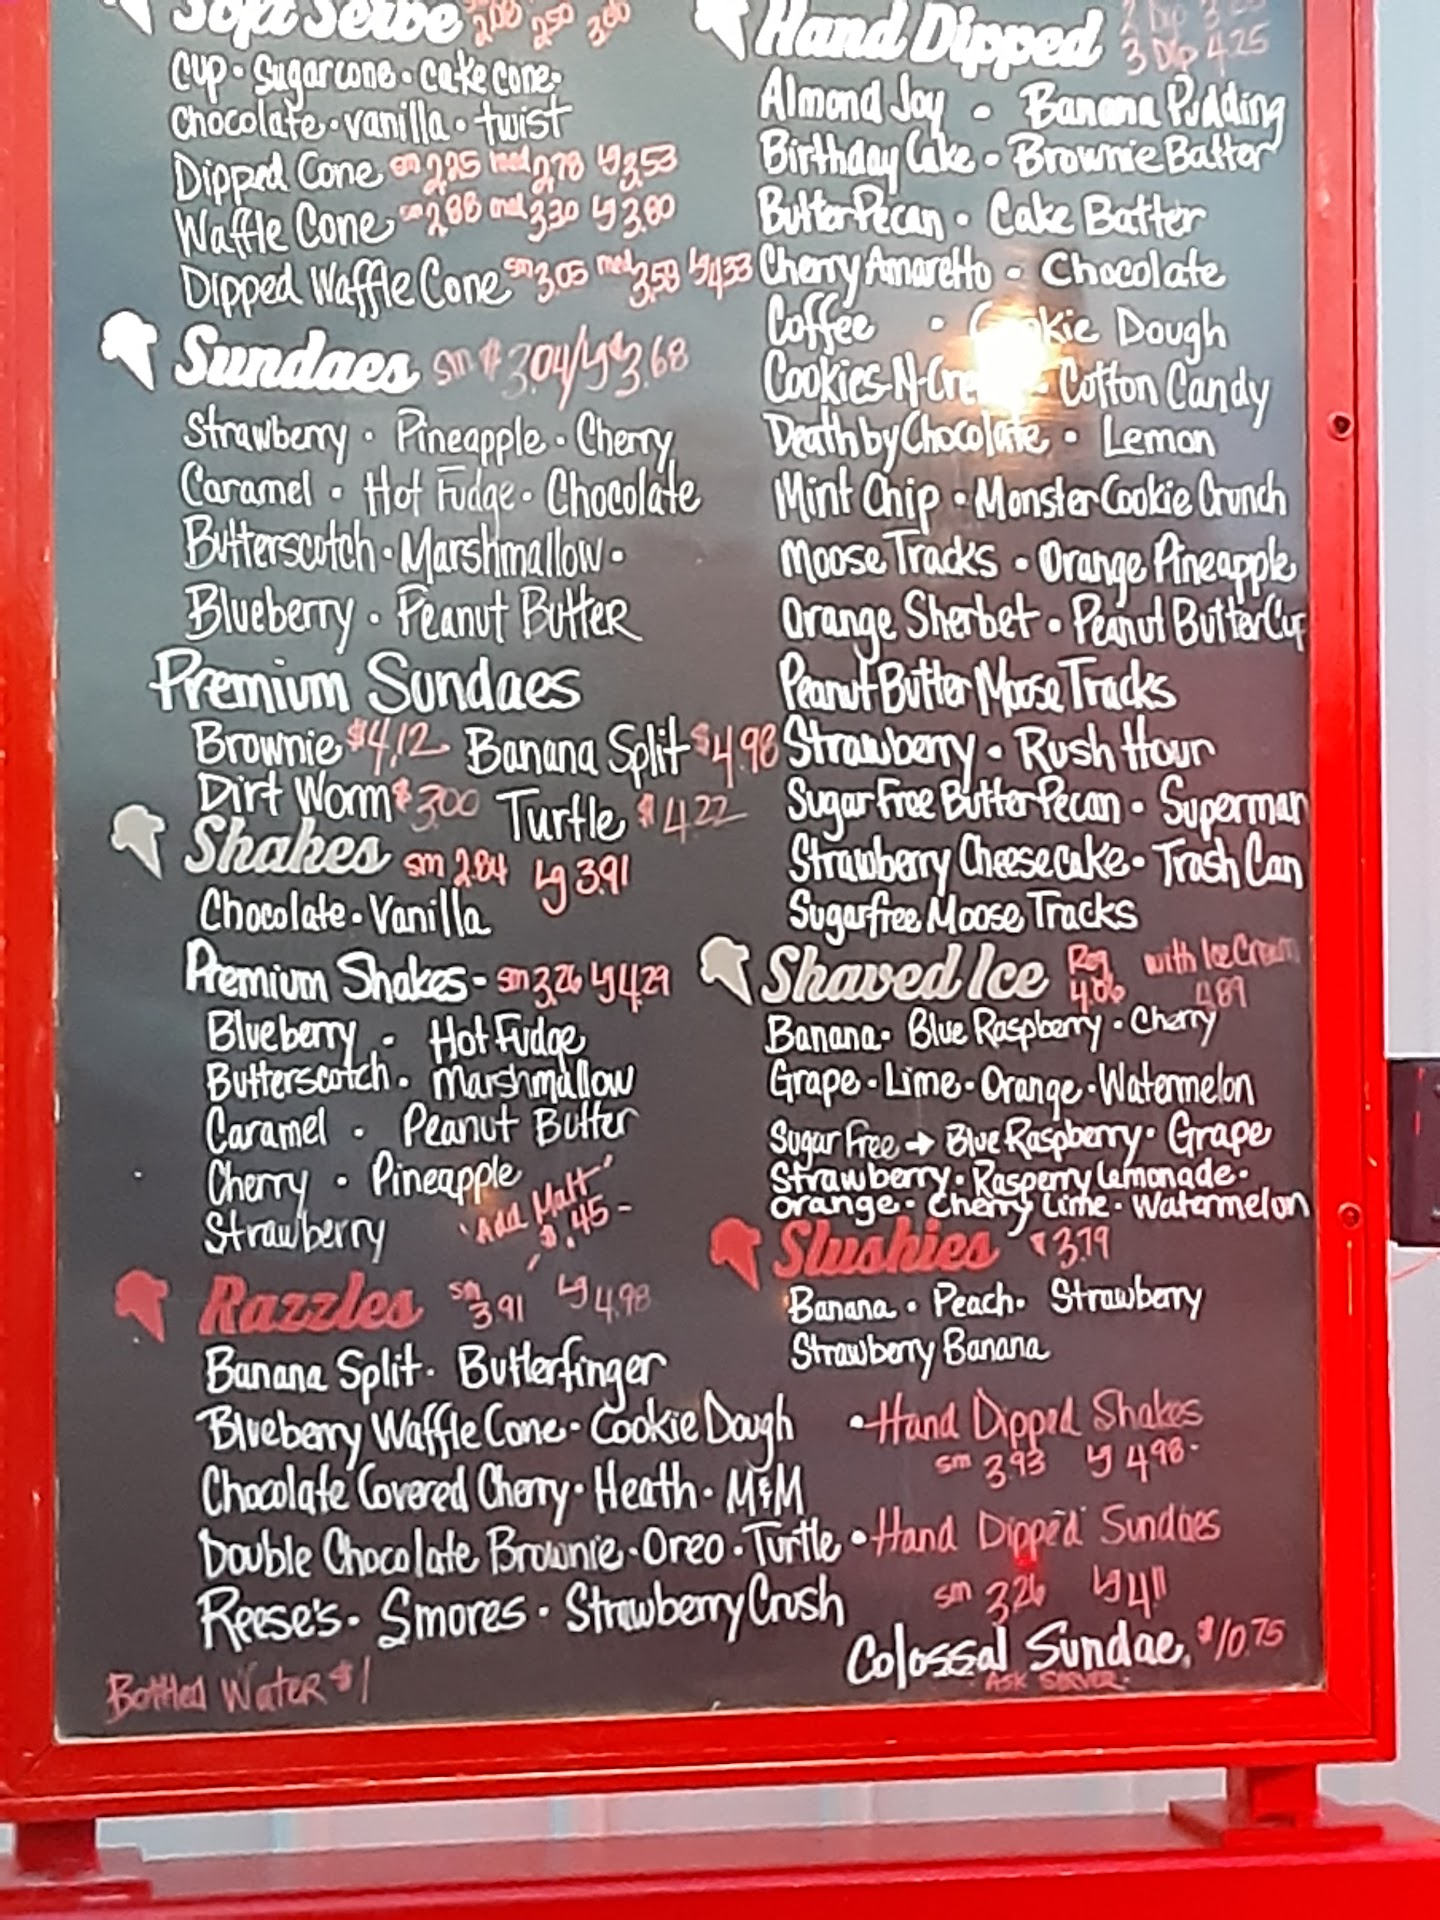 Soft Serve 2.00 2.50 3.00
Cup • Sugarcone • cake cone •
Chocolate • vanilla • twist
Dipped Cone sm 2.25 med 2.78 lg 3.53
Waffle Cone sm 2.88 med 3.30 lg 3.80
Dipped Waffle Cone sm 3.05 med 3.59 lg 4.33
Sundaes sm $3.04/lg $3.68
Strawberry • Pineapple • Cherry
Caramel • Hot Fudge • Chocolate
Butterscotch • Marshmallow •
Blueberry • Peanut Butter
Premium Sundaes
Brownie $4.12 Banana Split $4.98
Dirt Worm $3.00 Turtle $4.22
Shakes sm 2.84 lg 3.91
Chocolate • Vanilla
Premium Shakes - sm 3.26 lg 4.29
Blueberry • Hot Fudge
Butterscotch • Marshmallow
Caramel • Peanut Butter
Cherry • Pineapple
Strawberry
"Add Malt"
- $.45 -
Razzles sm 3.91 lg 4.98
Banana Split • Butterfinger
Blueberry Waffle Cone • Cookie Dough
Chocolate Covered Cherry • Heath • M&M
Double Chocolate Brownie • Oreo • Turtle
Reese's • Smores • Strawberry Crush
Bottled Water $1
Hand Dipped 2 Dip
3 Dip 4.25
Almond Joy • Banana Pudding
Birthday Cake • Brownie Batter
Butter Pecan • Cake Batter
Cherry Amaretto • Chocolate
Coffee • Cookie Dough
Cookies-N-Cream • Cotton Candy
Death by Chocolate • Lemon
Mint Chip • Monster Cookie Crunch
Moose Tracks • Orange Pineapple
Orange Sherbet • Peanut Butter Cup
Peanut Butter Moose Tracks
Strawberry • Rush Hour
Sugar Free Butter Pecan • Superman
Strawberry Cheesecake • Trash Can
Sugarfree Moose Tracks
Shaved Ice Reg 4.06 with Ice Cream 4.89
Banana • Blue Raspberry • Cherry
Grape • Lime • Orange • Watermelon
Sugar Free → Blue Raspberry • Grape
Strawberry • Rasperry Lemonade •
Orange • Cherry Lime • Watermelon
Slushies $3.79
Banana • Peach • Strawberry
Strawberry Banana
• Hand Dipped Shakes
sm 3.93 lg 4.98 -
• Hand Dipped Sundaes
sm 3.26 lg 4.11
Colossal Sundae, $10.75
- Ask Server -